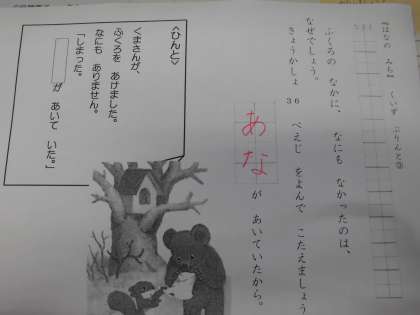 『はなの みち』 くいず ぷりんと③
ふくろの なかに、 なにも なかったのは、
なぜでしょう。
きょうかしょ 36 ぺえじ をよんで こたえましょう
あな が あいていたから。
＜ひんと＞
くまさんが、
ふくろを あけました。
なにも ありません。
「しまった。
が あいて いた。」